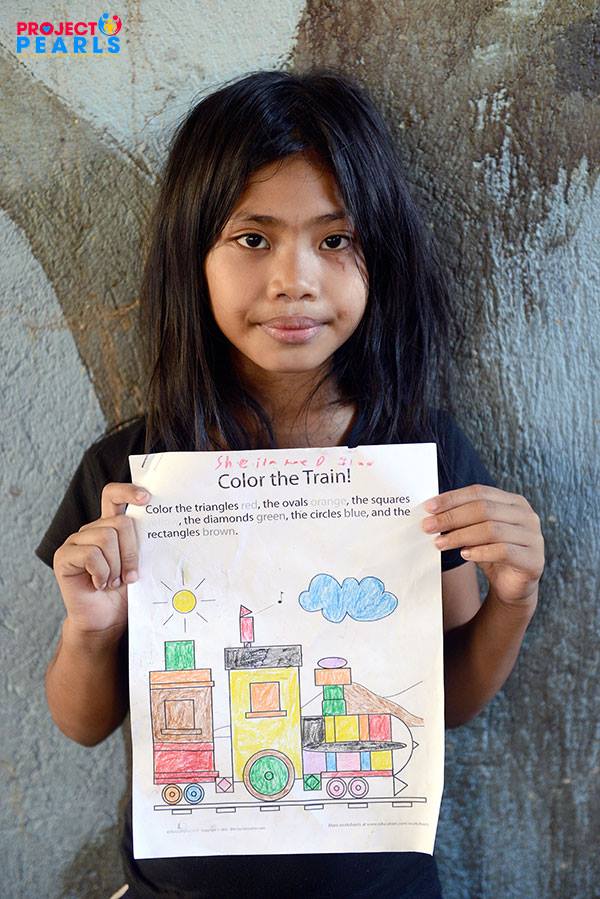 PROJECT
PEARLS
Color the Train!
Color the triangles red, the ovals orange, the squares
, the diamonds green, the circles blue, and the
rectangles brown.